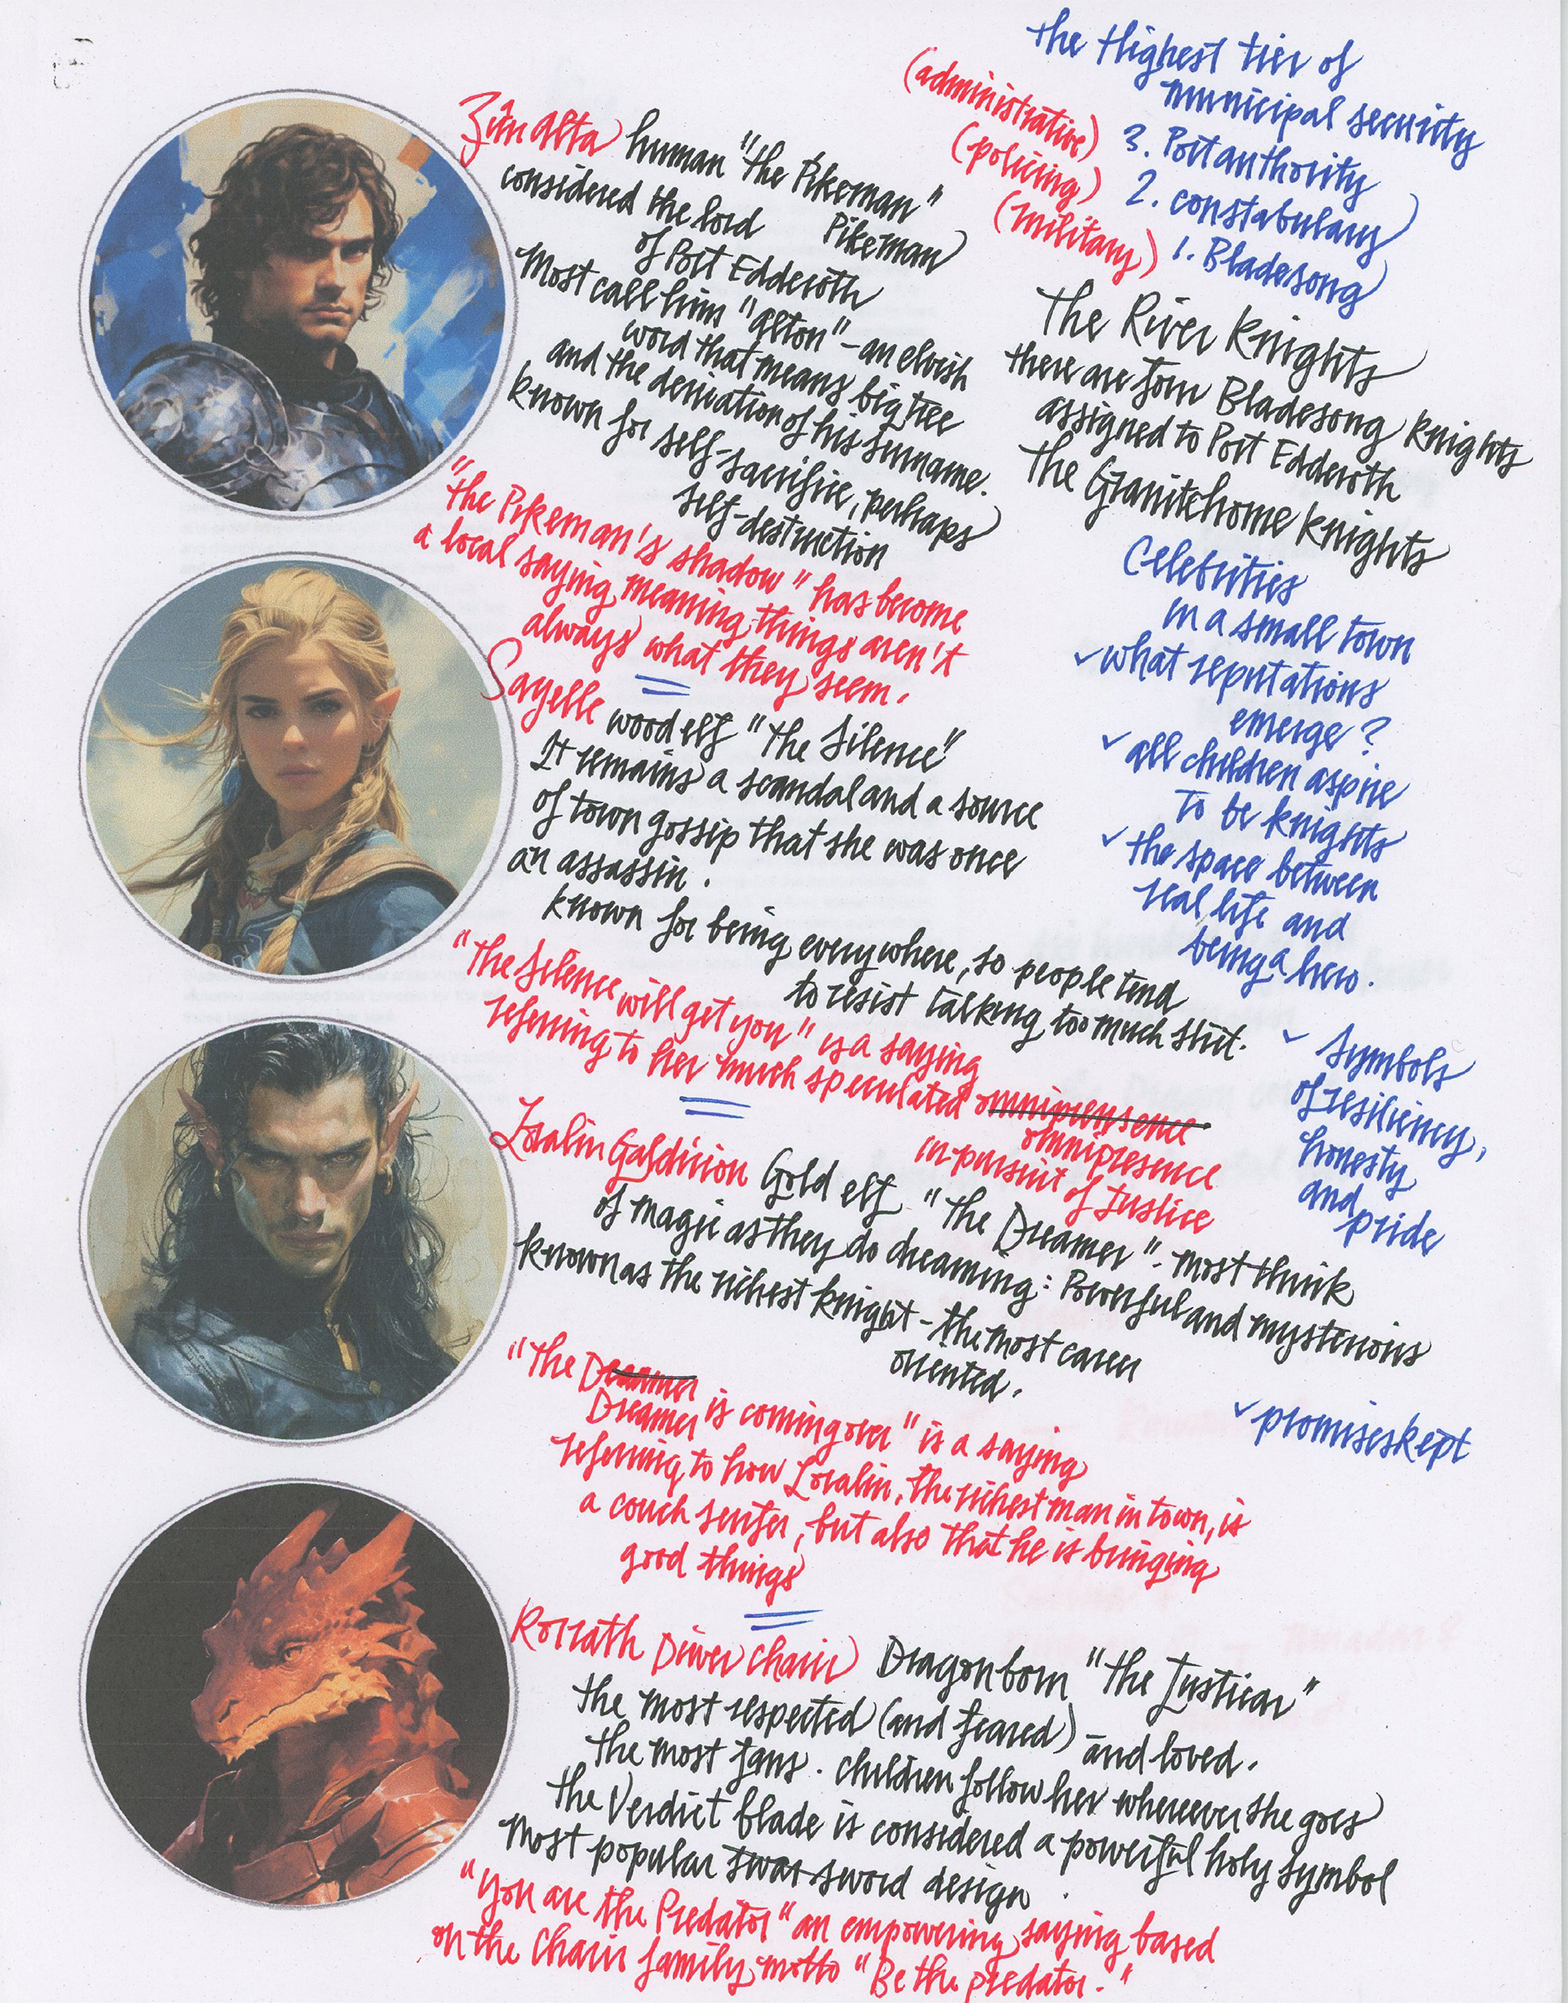 the Highest tier of
municipal security
(administrative) 3. Port authority
(policing) 2. constabulary
(military) 1. Bladesong
Zûn Alta human "the Pikeman"
considered the lord Pikeman
of Port Edderoth
Most call him "alton" - an elvish
word that means big tree
and the derivation of his surname.
known for self-sacrifice, perhaps
self-destruction
"the Pikeman's shadow" has become
a local saying meaning things aren't
always what they seem.
The River Knights
there are four Bladesong Knights
assigned to Port Edderoth
the Granitehome Knights
Celebrities
in a small town
✓ what reputations
emerge?
✓ all children aspire
to be knights
✓ the space between
real life and
being a hero.
✓ symbols
of resiliency,
honesty
and pride
✓ promises kept
Sayelle wood elf "the Silence"
It remains a scandal and a source
of town gossip that she was once
an assassin.
known for being everywhere, so people tend
to resist talking too much shit.
"The Silence will get you" is a saying
referring to her much speculated
omnipresence
in pursuit of Justice
Loralin Galdirion Gold elf "The Dreamer" - most think
of magic as they do dreaming: Powerful and mysterious
known as the richest knight - the most career
oriented.
"The Dreamer is coming over" is a saying
referring to how Loralin, the richest man in town, is
a couch surfer, but also that he is bringing
good things
Rorrath Diver Chair Dragonborn "the Justicar"
the most respected (and feared) - and loved.
the most fans. children follow her wherever she goes
the Verdict blade is considered a powerful holy symbol
Most popular sword design.
"You are the Predator" an empowering saying based
on the Chair family motto "Be the predator."